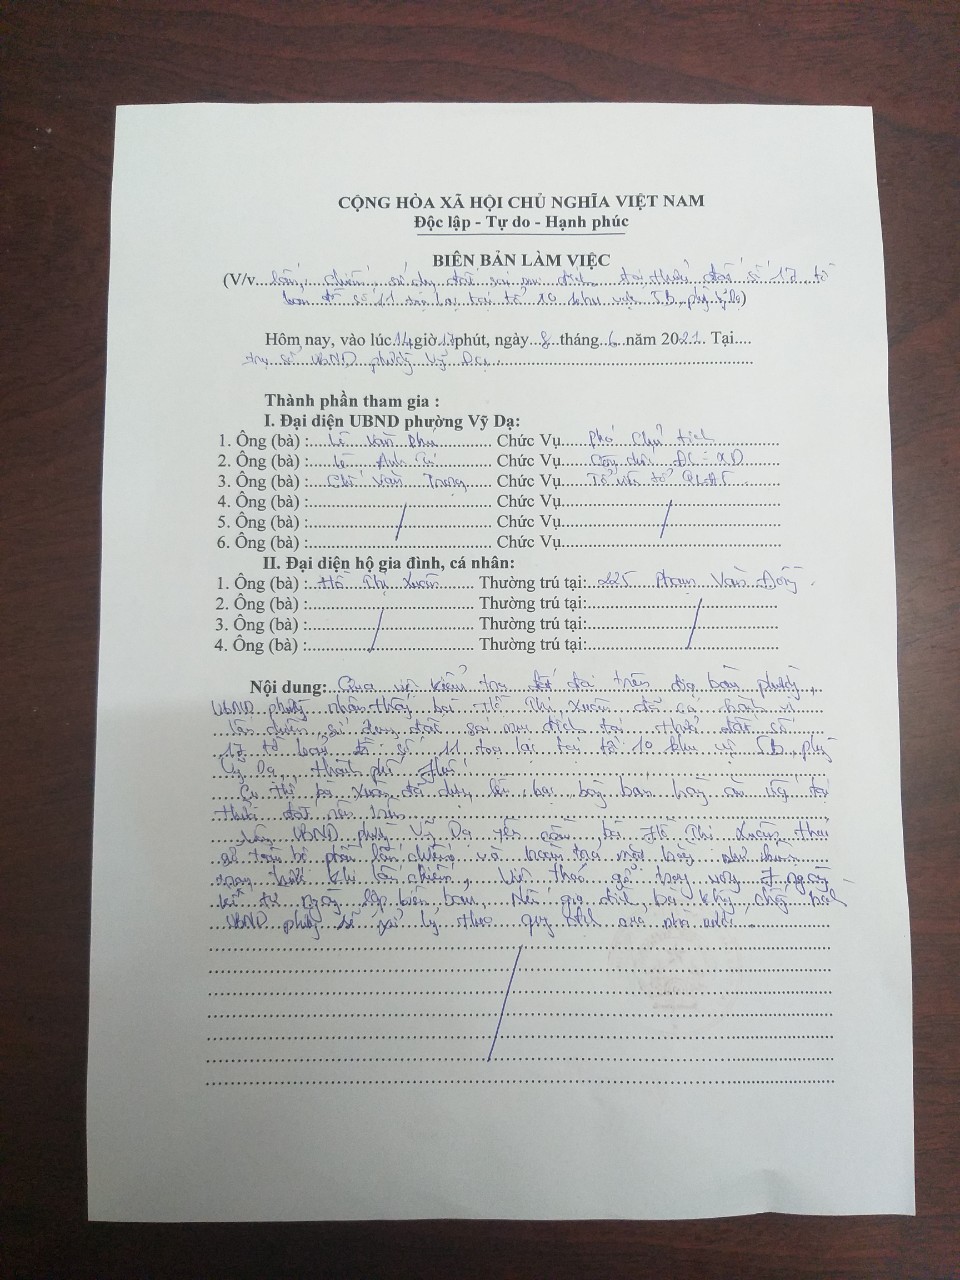 CỘNG HÒA XÃ HỘI CHỦ NGHĨA VIỆT NAM
Độc lập - Tự do - Hạnh phúc
BIÊN BẢN LÀM VIỆC
(V/v lấn, chiếm, sử dụng đất sai mục đích tại thửa đất số 17, tờ
bản đồ số 11 tọa lạc tại tổ 10 khu vực 5B, phg Vỹ Dạ)
Hôm nay, vào lúc 14 giờ 17 phút, ngày 8 tháng 6 năm 2021. Tại
trụ sở UBND phường Vỹ Dạ
Thành phần tham gia :
I. Đại diện UBND phường Vỹ Dạ:
1. Ông (bà) : Lê Văn Phú Chức Vụ Phó Chủ tịch
2. Ông (bà) : Lê Anh Chức Vụ Công chức ĐC - XD
3. Ông (bà) : Văn Trọng Chức Vụ Tổ
4. Ông (bà) : Chức Vụ
5. Ông (bà) : Chức Vụ
6. Ông (bà) : Chức Vụ
II. Đại diện hộ gia đình, cá nhân:
1. Ông (bà) : Hồ Thị Xuân Thường trú tại: 225 Phạm Văn Đồng
2. Ông (bà) : Thường trú tại:
3. Ông (bà) : Thường trú tại:
4. Ông (bà) : Thường trú tại:
Nội dung: Qua việc kiểm tra đất đai trên địa bàn phường,
UBND phường nhận thấy bà Hồ Thị Xuân đã có hành vi
lấn chiếm, sử dụng đất sai mục đích tại thửa đất số
17 tờ bản đồ số 11 tọa lạc tại tổ 10 khu vực 5B, phg
Vỹ Dạ, thành phố Huế.
Cụ thể bà Xuân đã dựng bán hàng tại
thửa đất nêu trên.
UBND phường Vỹ Dạ yêu cầu bà Hồ Thị Xuân tháo
toàn bộ phần lấn chiếm và hoàn trả mặt bằng như hiện
trạng trước khi lấn chiếm, tháo gỡ trong vòng 7 ngày
kể từ ngày lập biên bản, nếu gia đình bà không chấp hành
UBND phường sẽ xử lý theo quy định của nhà nước.